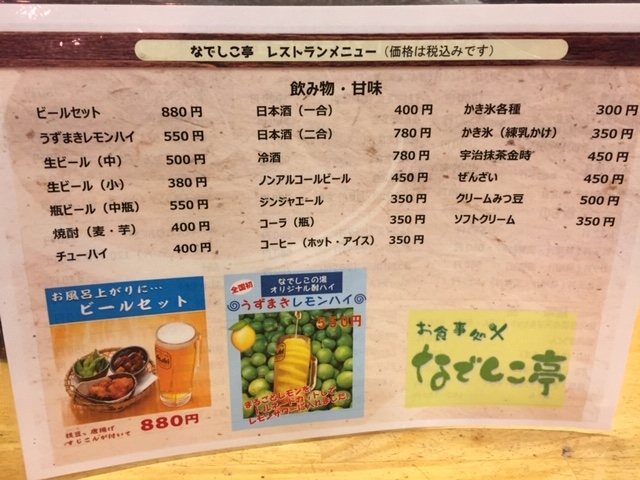 なでしこ亭 レストランメニュー(価格は税込みです)
飲み物・甘味
ビールセット 880円
うずまきレモンハイ 550円
生ビール(中) 500円
生ビール(小) 380円
瓶ビール(中瓶) 550円
焼酎(麦・芋) 400円
チューハイ 400円
日本酒(一合) 400円
日本酒(二合) 780円
冷酒 780円
ノンアルコールビール 450円
ジンジャエール 350円
コーラ(瓶) 350円
コーヒー(ホット・アイス) 350円
かき氷各種 300円
かき氷(練乳かけ) 350円
宇治抹茶金時 450円
ぜんざい 450円
クリームみつ豆 500円
ソフトクリーム 350円
お風呂上がりに…
ビールセット
枝豆、唐揚げ
すじこんが付いて
880円
全国初
なでしこの湯
オリジナル酎ハイ
うずまきレモンハイ
まるごとレモンを
お食事処
なでしこ亭